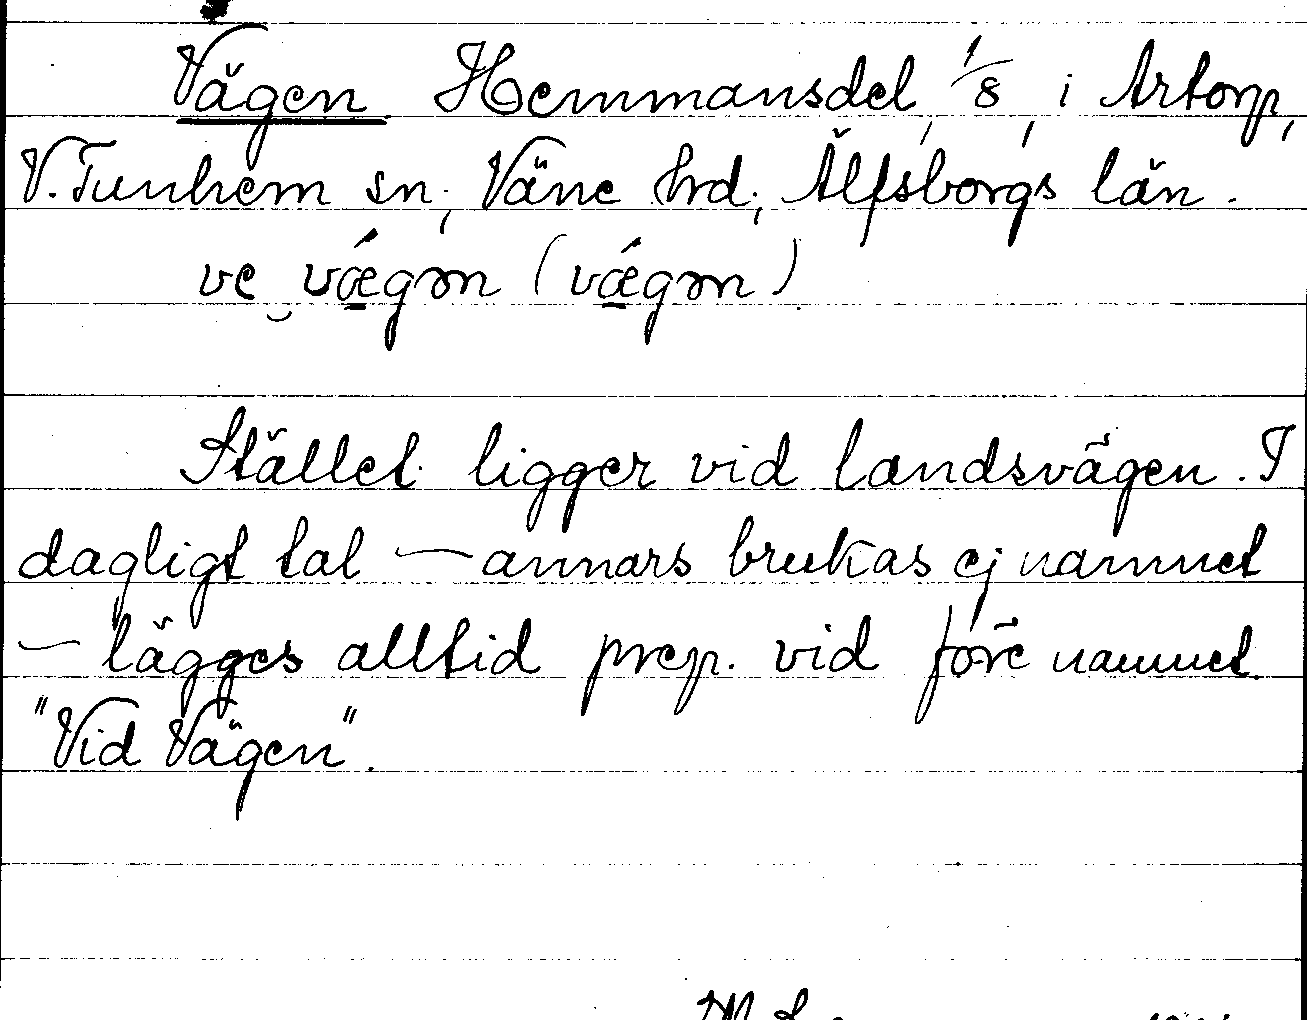 Vägen Hemmansdel, 1/8, i Artorp,
V. Tunhem sn, Väne hrd, Älfsborgs län.
ve vǽgən (vǽgən)
Stället ligger vid landsvägen. I
dagligt tal — annars brukas ej namnet
— lägges alltid prep. vid före namnet.
"Vid Vägen".